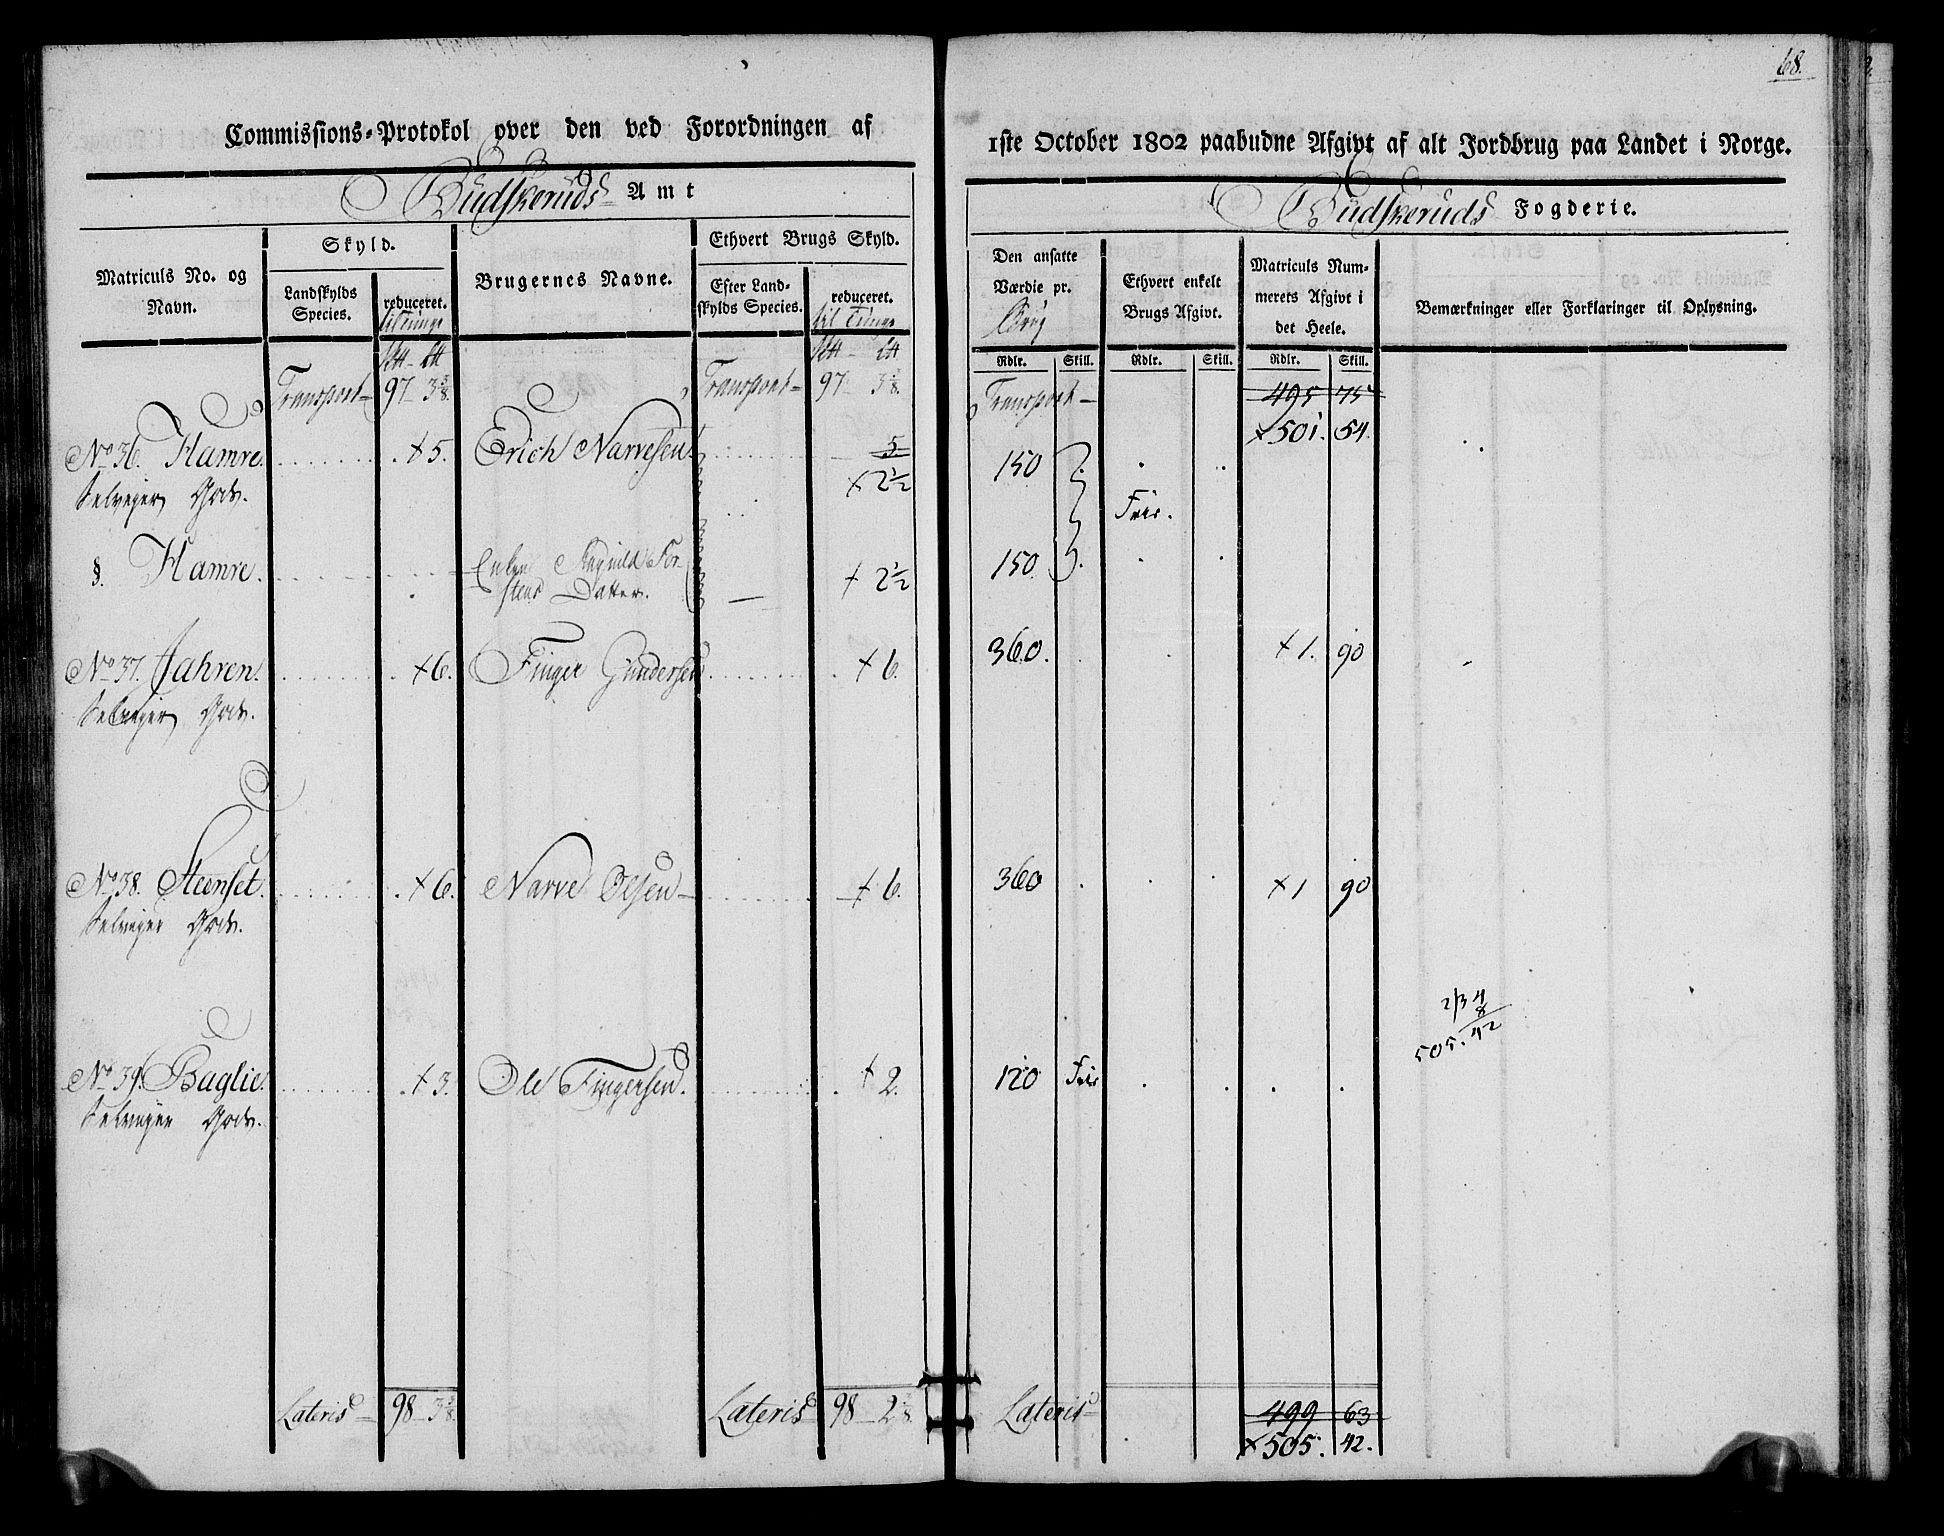 68.
Commissions-Protokol over den ved Forordningen af
1ste October 1802 paabudne Afgivt af alt Jordbrug paa Landet i Norge.
Budskeruds Amt
Budskeruds Fogderie.
Matriculs No. og Navn.
Skyld.
Landskylds Species.
reduceret.
til Tunge
Brugernes Navne.
Ethvert Brugs Skyld.
Efter Landskylds Species.
reduceret.
til Tunge
Den ansatte Værdie pr.
Brug
Ethvert enkelt Brugs Afgivt.
Matriculs Nummerets Afgivt i det Heele.
Bemærkninger eller Forklaringer til Oplysning.
Rdlr. Skill. Rdlr. Skill. Rdlr. Skill.
Transport 97 3 3/8. Transport 97 3 3/8. Transport 495 75
+ 501. 54.
No 36. Hamre. + 5. Erich Narvesen 5 150
Selveyer Gods. + 2 1/2 Frie.
§. Hamre. Enken Ragnild Torstens Datter. + 2 1/2 150
No 37. Jahren. + 6. Finger Gundersen + 6. 360. + 1. 90
Selveyer Gods.
No 38. Steenset. + 6. Narve Olsen + 6. 360 + 1 90
Selveyer Gods.
No 39. Baglie. + 3. Ole Fingersen. + 2. 120 Frie
Selveyer Gods.
505. 42
Lateris 98 3 3/8. Lateris 98 2 3/8. Lateris 499 63
+ 505. 42.